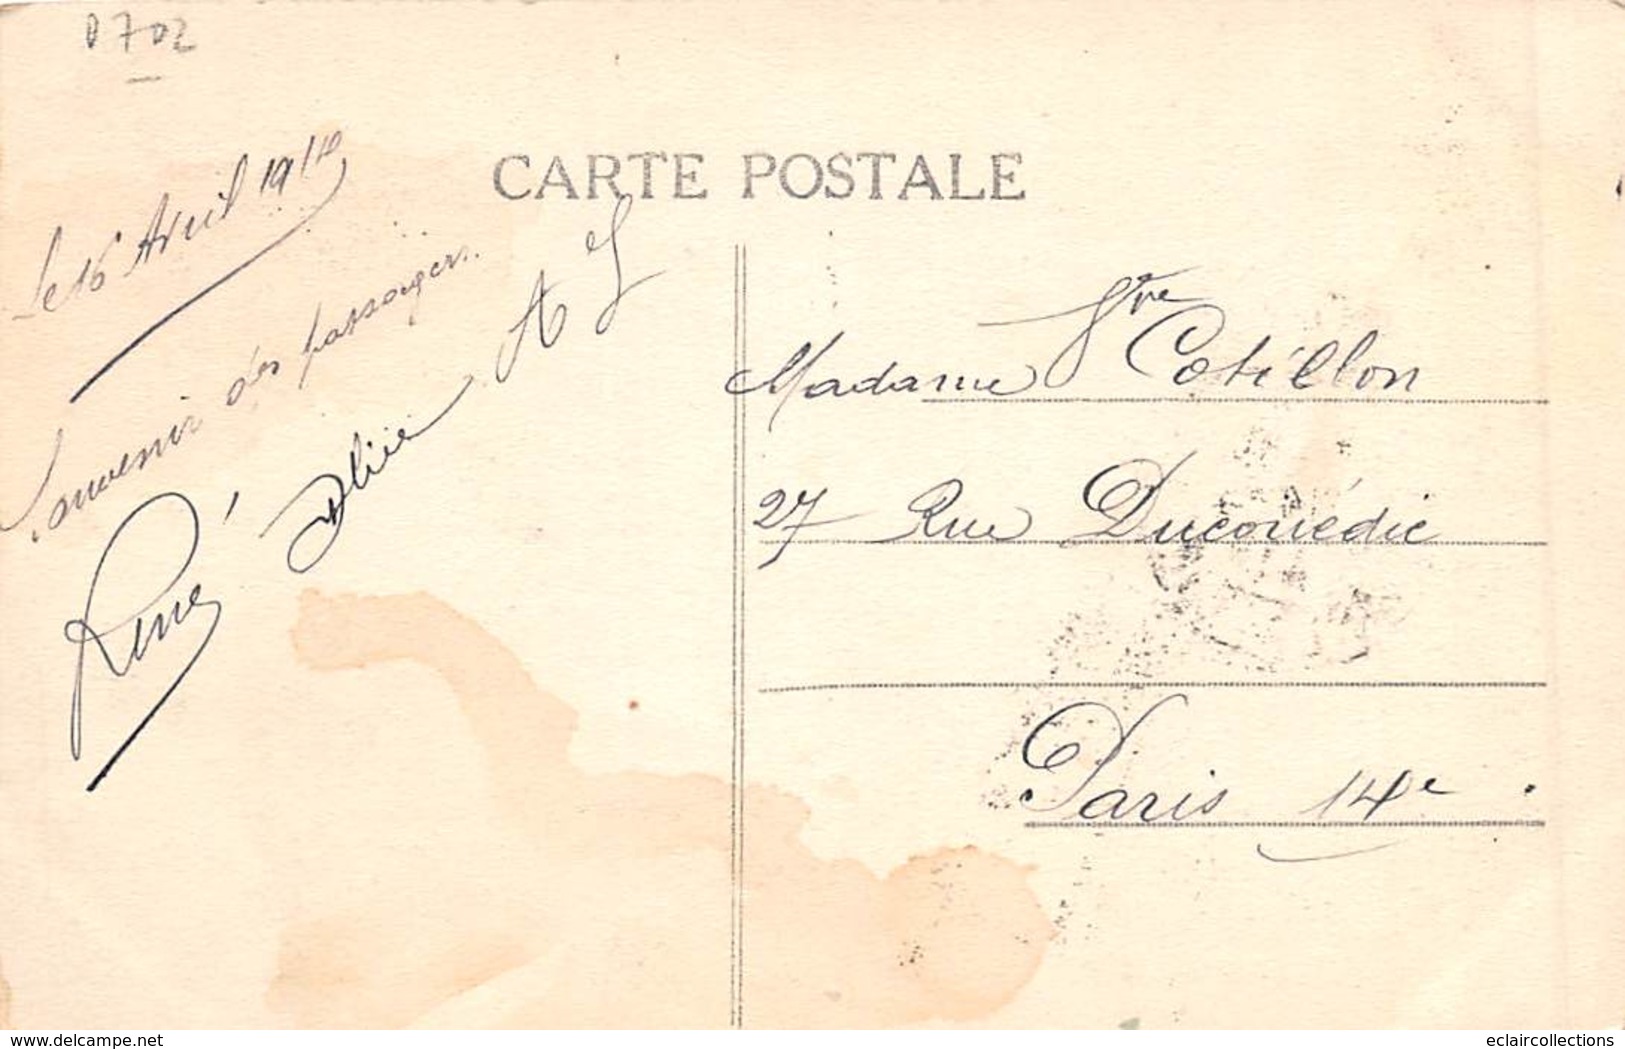 0702
CARTE POSTALE
Le 16 Avril 1912
Souvenir des passagers.
René Alice A L
Madame Vve Cotillon
27 Rue Ducouëdic
Paris 14e.
www.delcampe.net
eclaircollections